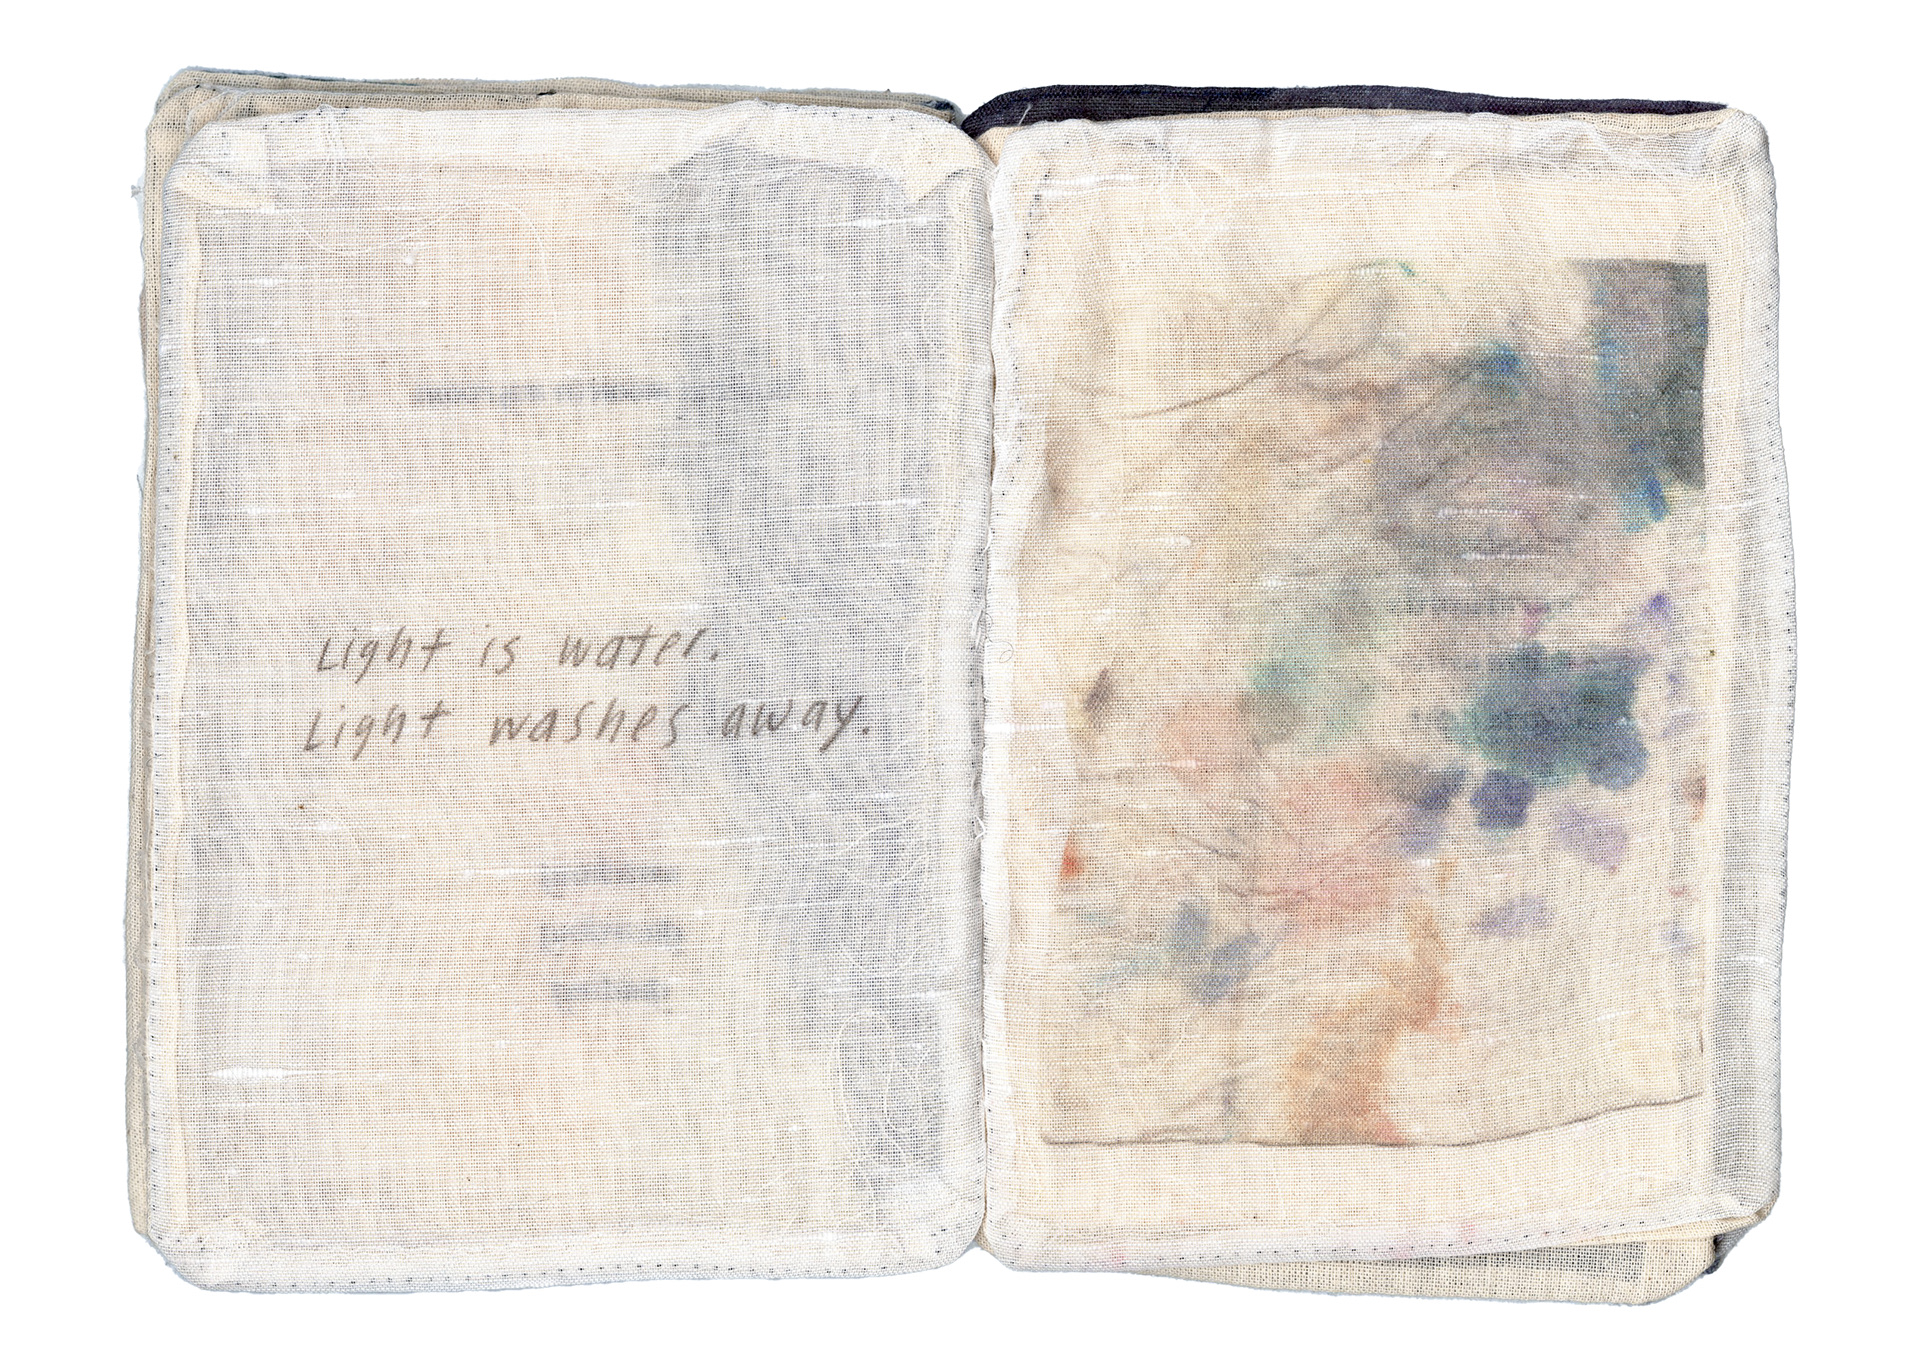 Light is water.
Light washes away.